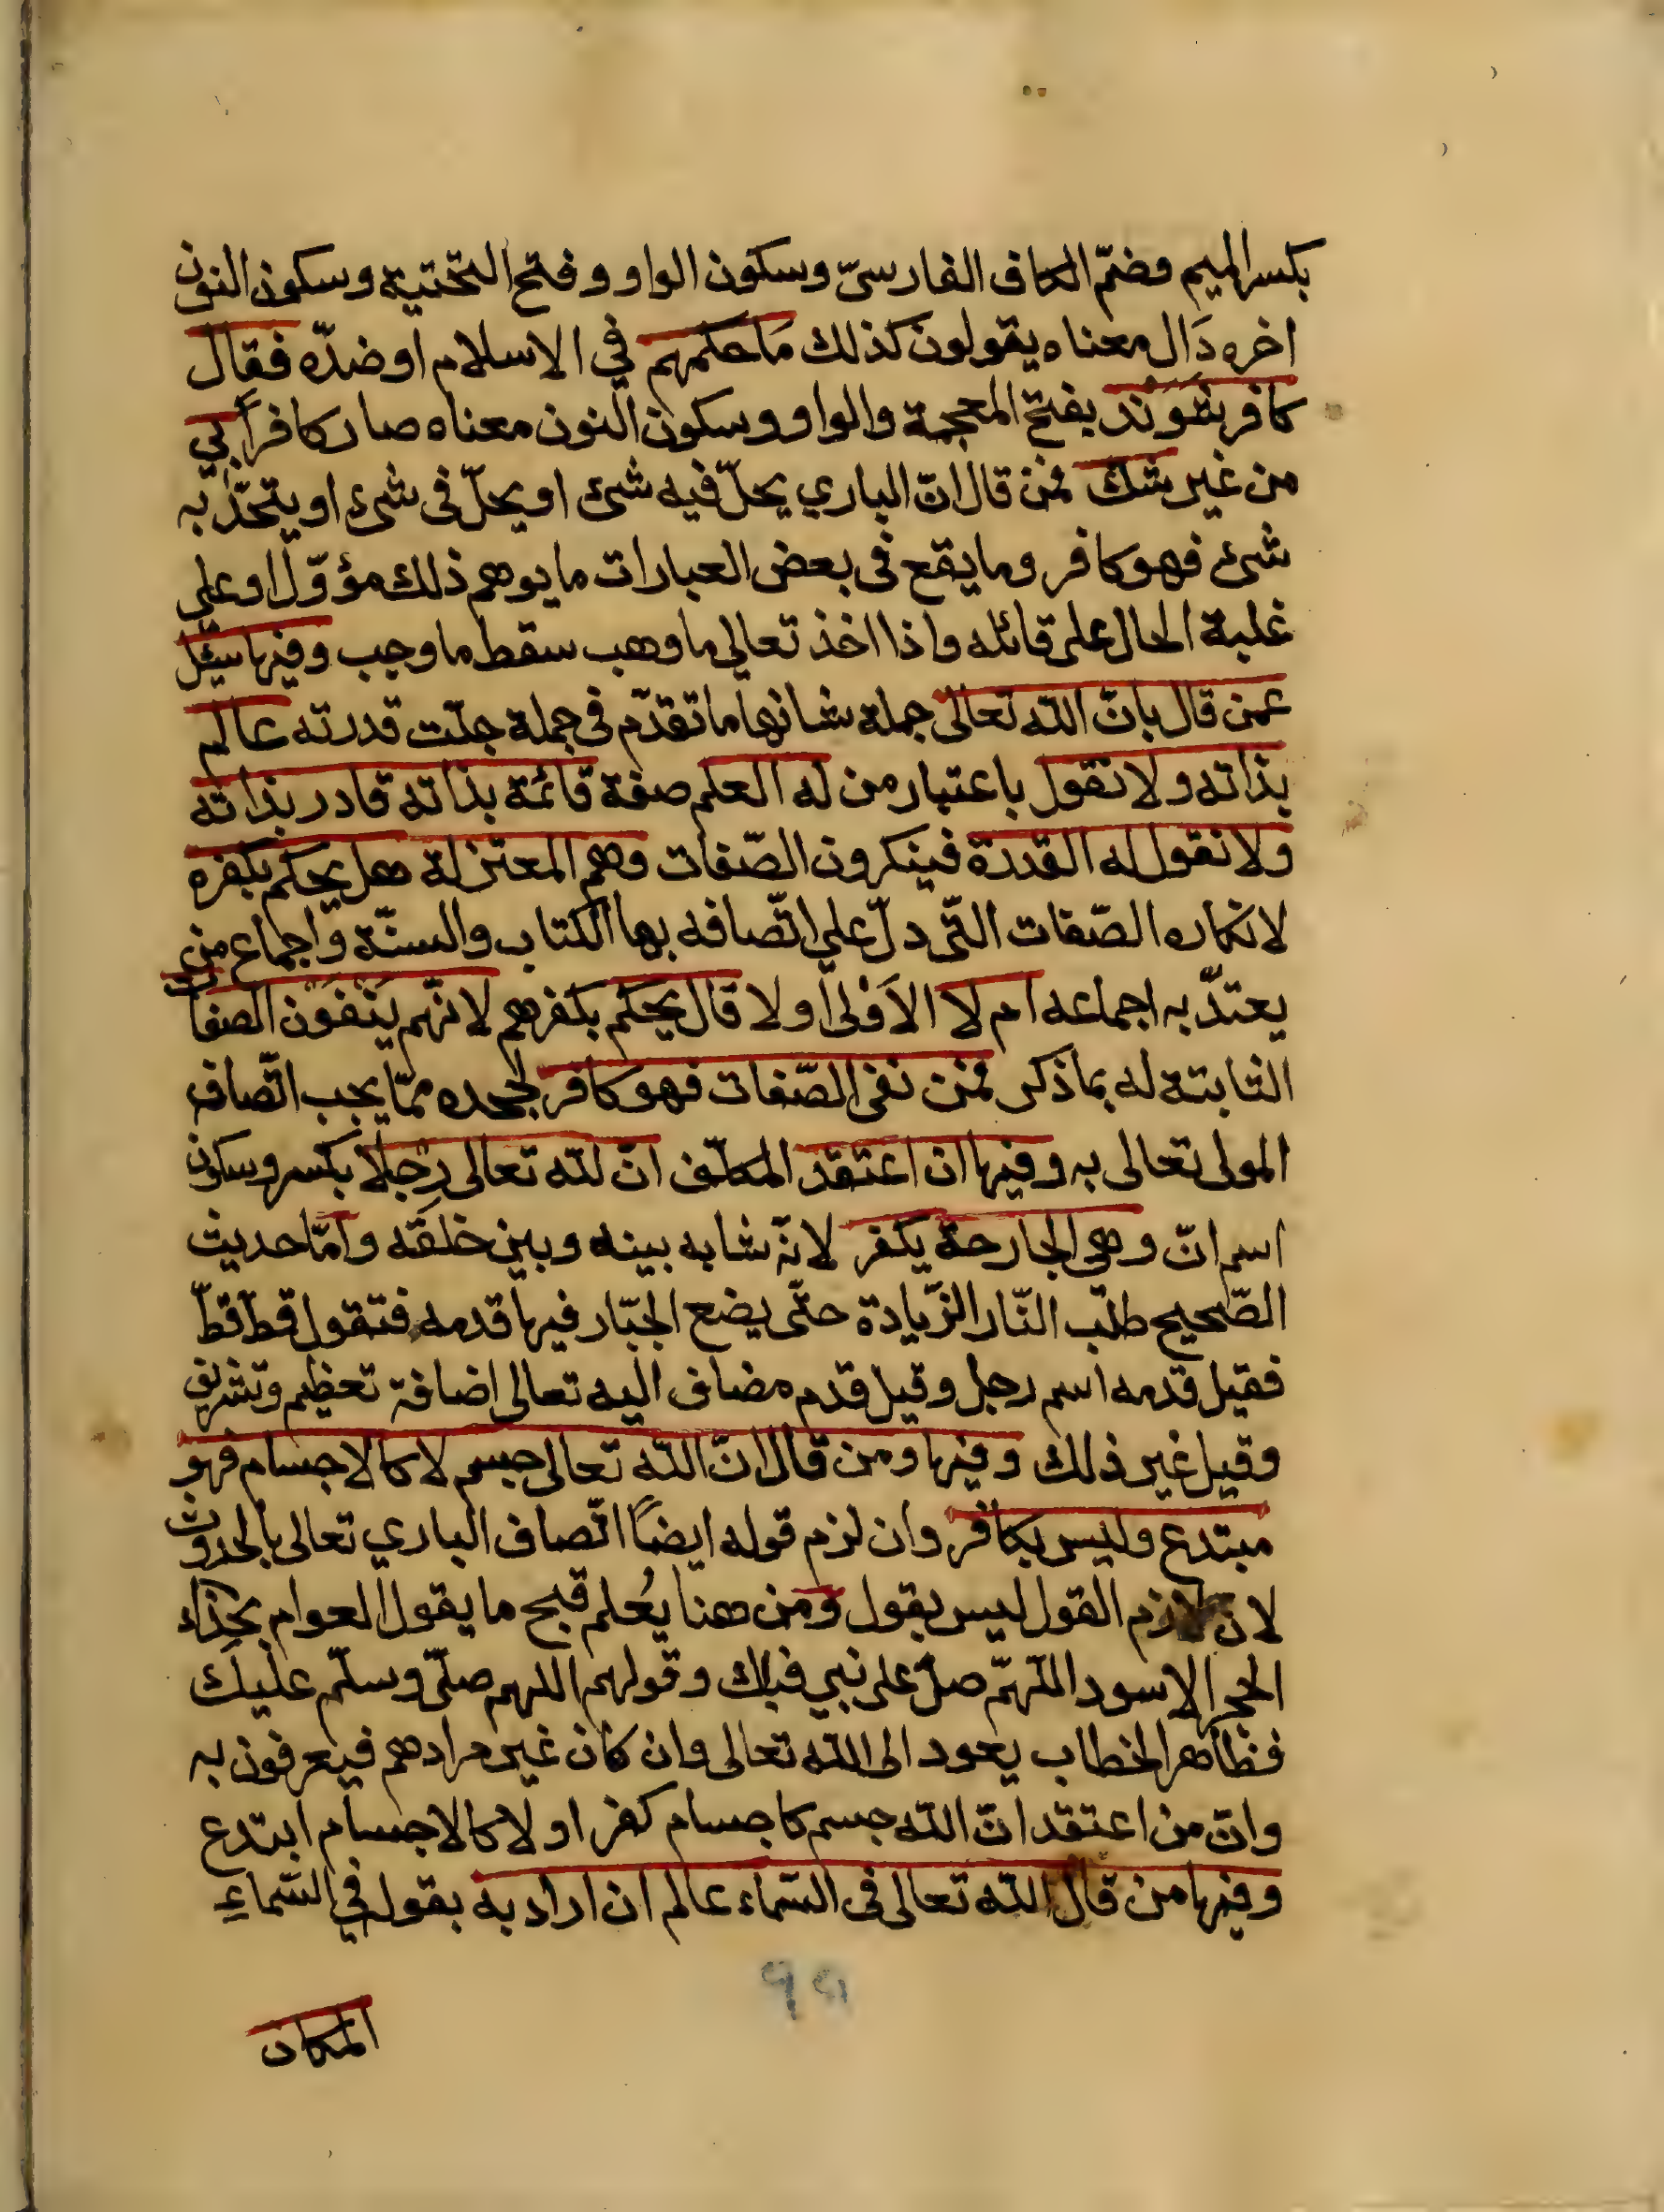 بكسر الميم وضمّ الكاف الفارسيّ وسكون الواو وفتح التحتية وسكون النون
اخره دَال معناه يقولون كذلك مَا حكمهم في الاسلام او ضدّه فقال
كافر بفتح المعجمة والواو وسكون النون معناه صار كافراً
من غير شك فمن قال انّ الباري يحلّ فيه شئ او يحلّ فى شئ او يتحّد به
شئ فهو كافر وما يقع فى بعض العبارات ما يوهم ذلك مؤوّل او على
غلبة الحال على قائله واذا اخذ تعالى ما وهب سقط ما وجب وفيها سئل
عمن قال بانّ اللّه تعالى جملة شانها ما تقدّم فى جملة جلّت قدرته عالم
بذاته ولا نقول باعتبار من له العلم صفة قائمة بذاته قادر بذاته
ولا نقول له القدرة فينكرون الصّفات وهم المعتزلة هل يحكم بكفره
لانكاره الصّفات التّى دلّ على اتّصافه بها الكتاب والسنّة واجماع من
يعتدّ به اجماعه ام لا الاَوْلى اولا قال يحكم بكفرهم لانّهم يَنْفَوْن الصفا
الثابتة له بما ذكر فمن نفى الصّفات فهو كافر لجحده ممّا يجب اتّصاف
المولى تعالى به وفيها ان اعتقد المكلّف انّ للّه تعالى رِجلا بكسر وسكون
اسم انّ وهى الجارحة يكفر لانّه شابه بينه وبين خلقه وامّا حديث
الصّحيح طلب النّار الزّيادة حتّى يضع الجبّار فيها قدمه فتقول قطّ قطّ
فقيل قدمه اسم رجل وقيل قدم مضاف اليه تعالى اضافة تعظيم وتشريف
وقيل غير ذلك وفيها ومن قال انّ اللّه تعالى جسم لا كالاجسام فهو
مبتدع وليس بكافر وان لزم قوله ايضاً اتّصاف الباري تعالى بالحدوث
لان لازم القول ليس بقول ومن هنا يُعلم قبح ما يقول العوام بحِذاء
الحجر الاسود اللّهمّ صلّ على نبي قبلك وقولهم اللهم صلّى وسلّم عليك
فظاهر الخطاب يعود الى اللّه تعالى وان كان غير مرادهم فيعرفون به
وانّ من اعتقد انّ اللّه جسم كاجسام كفر او لا كالاجسام ابتدع
وفيها من قال اللّه تعالى فى السّماء عالم ان اراد به بقوله في السّماءِ
٩٩
المكان